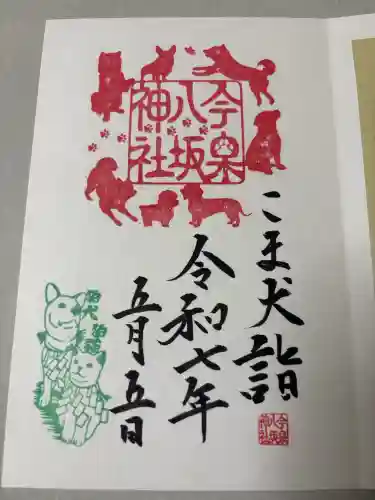 今泉
八坂
神社
こま犬詣
令和七年
五月五日
今泉
八坂
神社